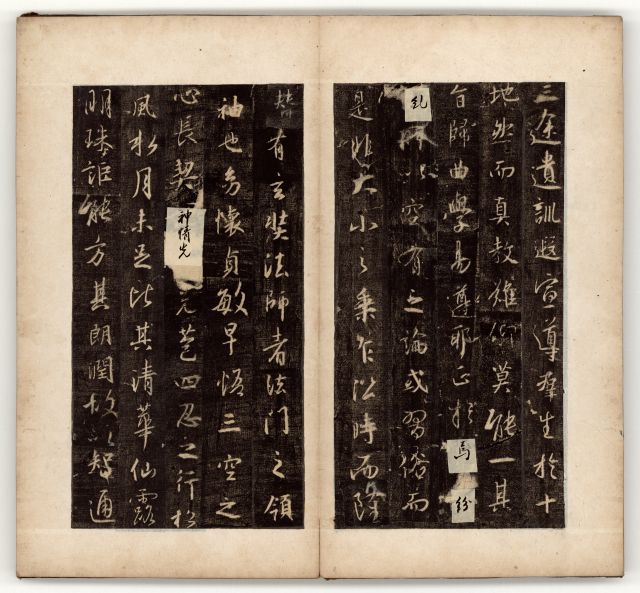 三途遺訓遐宣導羣生於十
地然而真教難仰莫能一其
旨歸曲學易遵耶正於焉紛
糺所以空有之論或習俗而
是非大小之乘乍沿時而隆
替有玄奘法師者法門之領
袖也幼懷貞敏早悟三空之
心長契神情先苞四忍之行松
風水月未足比其清華仙露
明珠詎能方其朗潤故以智通